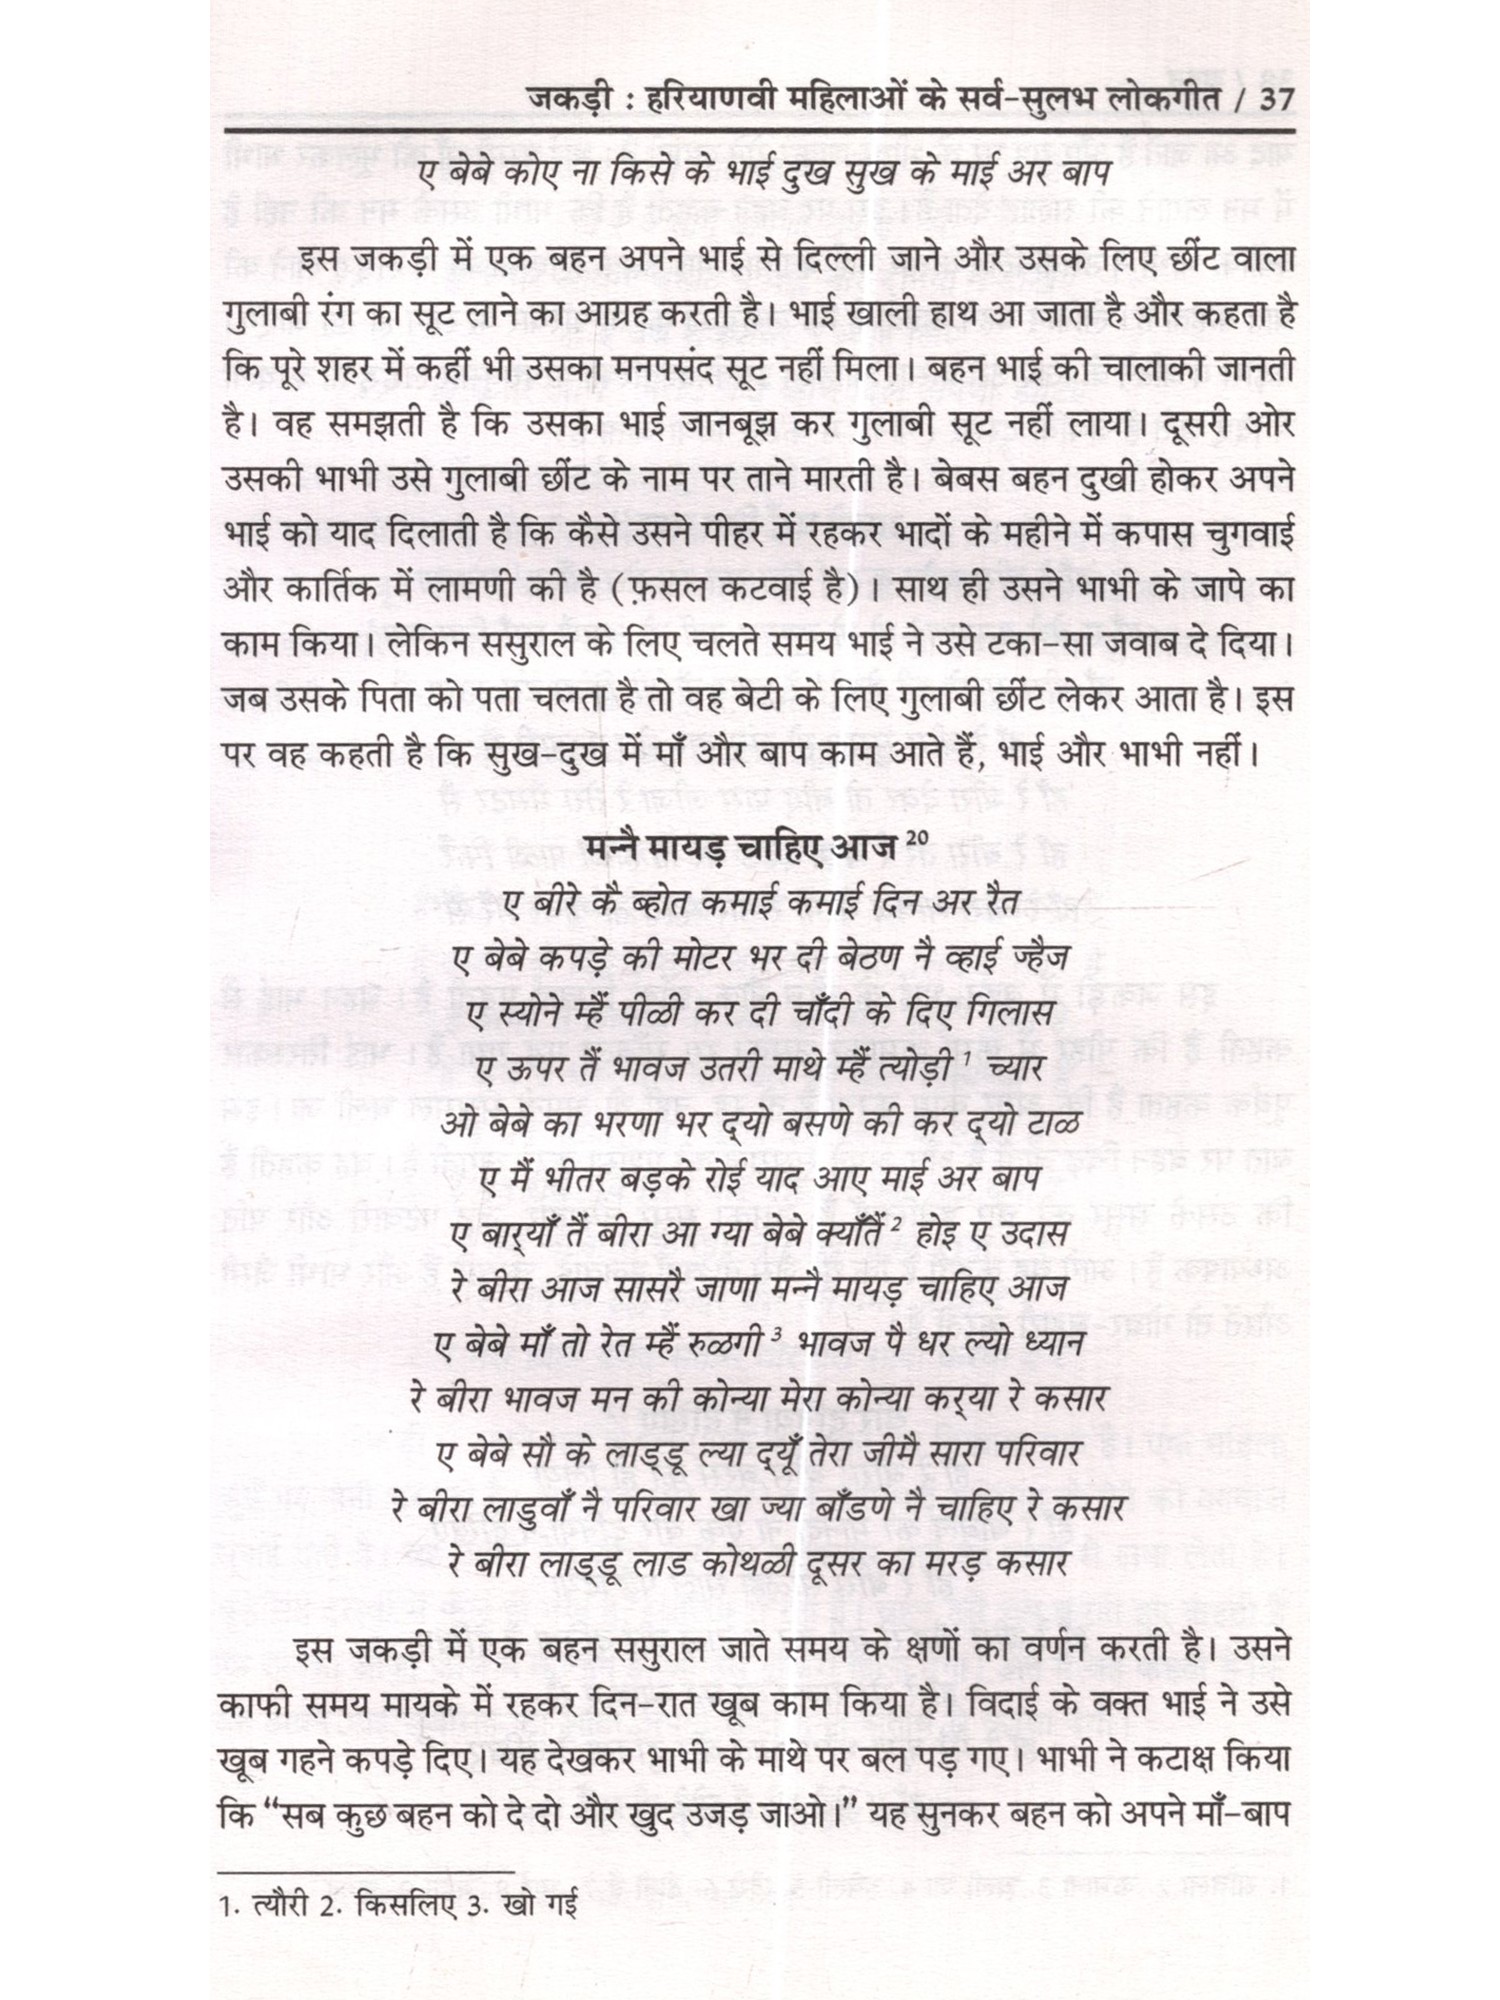 जकड़ी : हरियाणवी महिलाओं के सर्व-सुलभ लोकगीत / 37
ए बेबे कोए ना किसे के भाई दुख सुख के माई अर बाप
इस जकड़ी में एक बहन अपने भाई से दिल्ली जाने और उसके लिए छींट वाला
गुलाबी रंग का सूट लाने का आग्रह करती है। भाई खाली हाथ आ जाता है और कहता है
कि पूरे शहर में कहीं भी उसका मनपसंद सूट नहीं मिला। बहन भाई की चालाकी जानती
है। वह समझती है कि उसका भाई जानबूझ कर गुलाबी सूट नहीं लाया। दूसरी ओर
उसकी भाभी उसे गुलाबी छींट के नाम पर ताने मारती है। बेबस बहन दुखी होकर अपने
भाई को याद दिलाती है कि कैसे उसने पीहर में रहकर भादों के महीने में कपास चुगवाई
और कार्तिक में लामणी की है (फ़सल कटवाई है)। साथ ही उसने भाभी के जापे का
काम किया। लेकिन ससुराल के लिए चलते समय भाई ने उसे टका-सा जवाब दे दिया।
जब उसके पिता को पता चलता है तो वह बेटी के लिए गुलाबी छींट लेकर आता है। इस
पर वह कहती है कि सुख-दुख में माँ और बाप काम आते हैं, भाई और भाभी नहीं।
मन्नै मायड़ चाहिए आज 20
ए बीरे कै ब्होत कमाई कमाई दिन अर रैत
ए बेबे कपड़े की मोटर भर दी बेठण नै व्हाई ज्हैज
ए स्योने म्हैं पीळी कर दी चाँदी के दिए गिलास
ए ऊपर तैं भावज उतरी माथे म्हैं त्योड़ी 1 च्यार
ओ बेबे का भरणा भर द्‌यो बसणे की कर द्‌यो टाळ
ए मैं भीतर बड़के रोई याद आए माई अर बाप
ए बार्‌याँ तैं बीरा आ ग्या बेबे क्याँतैं 2 होइ ए उदास
रे बीरा आज सासरै जाणा मन्नै मायड़ चाहिए आज
ए बेबे माँ तो रेत म्हैं रुळगी 3 भावज पै धर ल्यो ध्यान
रे बीरा भावज मन की कोन्या मेरा कोन्या कर्‌या रे कसार
ए बेबे सौ के लाड्‌डू ल्या द्‌यूँ तेरा जीमै सारा परिवार
रे बीरा लाडुवाँ नै परिवार खा ज्या बाँडणे नै चाहिए रे कसार
रे बीरा लाड्‌डू लाड कोथळी दूसर का मरड़ कसार
इस जकड़ी में एक बहन ससुराल जाते समय के क्षणों का वर्णन करती है। उसने
काफी समय मायके में रहकर दिन-रात खूब काम किया है। विदाई के वक्त भाई ने उसे
खूब गहने कपड़े दिए। यह देखकर भाभी के माथे पर बल पड़ गए। भाभी ने कटाक्ष किया
कि “सब कुछ बहन को दे दो और खुद उजड़ जाओ।” यह सुनकर बहन को अपने माँ-बाप
1. त्यौरी 2. किसलिए 3. खो गई